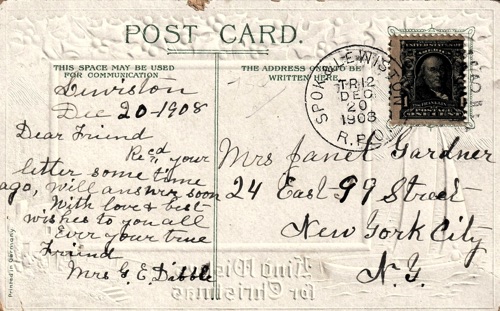 POST CARD.
THIS SPACE MAY BE USED
FOR COMMUNICATION
THE ADDRESS ONLY TO BE
WRITTEN HERE
Lewiston
Dec 20-1908
Dear Friend
Recd your
letter some time
ago, will answer soon
With love & best
wishes to you all
Ever your true
Friend
Mrs G. E. Dibble
SPOK & LEWISTON
TR 12
DEC
20
1908
R.P.O.
Mrs Janet Gardner
24 East 99 Street
New York City
N.Y.
Printed in Germany
Kind Wis
for Christmas